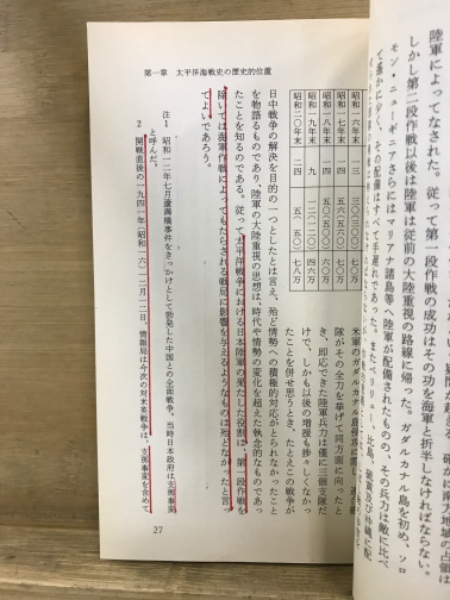 確かに南方地域の占領は
陸軍によってなされた。従って第一段作戦の成功はその功を海軍と折半しなければならない。
しかし第二段作戦以後は陸軍は従前の大陸重視の路線に帰った。ガダルカナル島を初め、ソロ
モン・ニューギニアさらにはマリアナ諸島等へ陸軍が配備されたものの、その兵力は敵に比べ
て遙かに少く、その配備はすべて手遅れであった。またペリリュー、比島、硫黄及び沖縄に配
第一章 太平洋海戦史の歴史的位置
米軍のガダルカナル島
隊がその全力を挙げて同方面に向ったと
き、即応できた陸軍兵力は僅に三個支隊だ
けで、しかも以後の増援も捗々しくなかっ
たことを併せ思うとき、たとえこの戦争が
昭和一六年末 一三 七〇万
昭和一七年末 一四 七〇万
昭和一八年末 一四 六〇万
昭和一九年末 九 四六万
昭和二〇年末 二四 七八万
日中戦争の解決を目的の一つとしたとは言え、殆ど情勢への積極的対応がとられなかったこと
を物語るものであり、陸軍の大陸重視の思想は、時代や情勢の変化を超えた執念的なものであっ
たことを知るのである。従って太平洋戦争における日本陸軍の果たした役割は、第一段作戦を
除いては海軍作戦によってもたらされる戦局に影響を与えるようなものは殆どなかったと言っ
てよいであろう。
注1 昭和一二年七月蘆溝橋事件をきっかけとして勃発した中国との全面戦争。当時日本政府は支那事変
と呼んだ。
2 開戦直後の一九四一年(昭和一六)一二月一二日、情報局は今次の対米英戦争は、支那事変を含めて
27